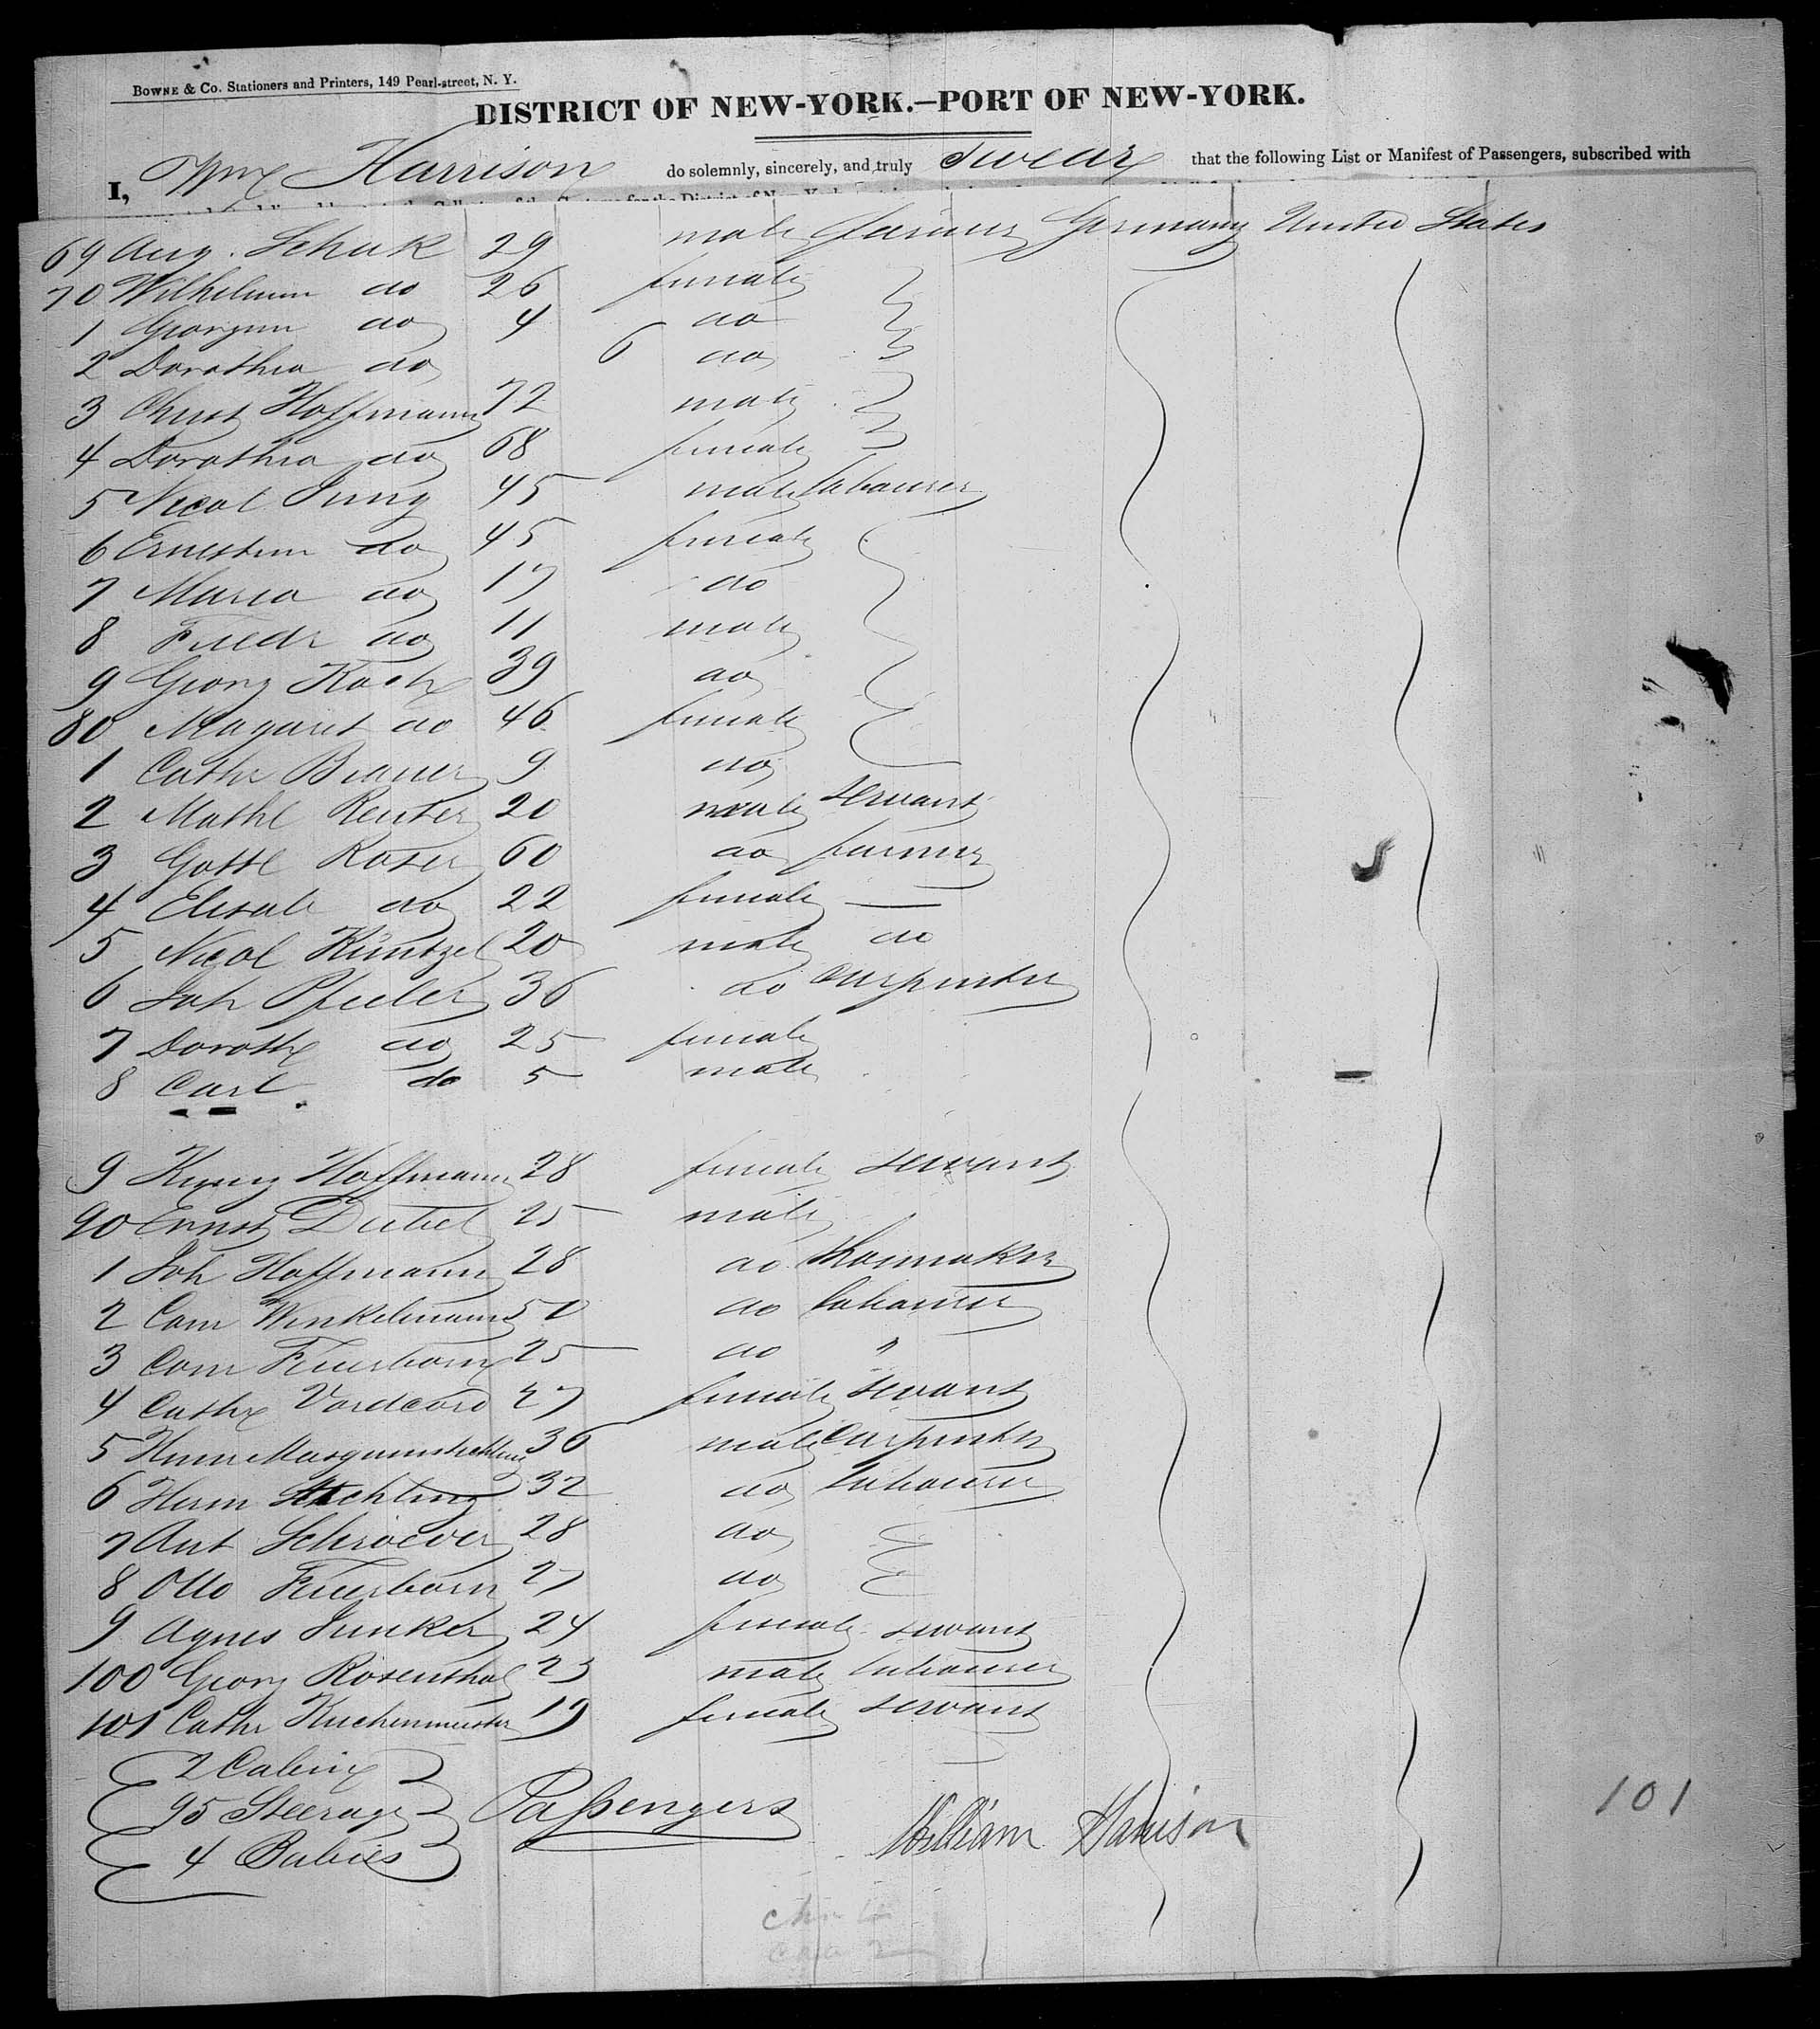 BOWNE & Co. Stationers and Printers, 149 Pearl-street, N. Y.
DISTRICT OF NEW-YORK.—PORT OF NEW-YORK.
I, Wm Harrison do solemnly, sincerely, and truly Swear that the following List or Manifest of Passengers, subscribed with
69 Aug. Schak 29 male farmer Germany United States
70 Wilhelmin do 26 female
1 Georgin do 4 do
2 Dorothea do 6 do
3 Christ Hoffmann 72 male
4 Dorothea do 68 female
5 Nicol Jung 45 male labourer
6 Ernestin do 45 female
7 Maria do 17 do
8 Friedr do 11 male
9 Georg Koch 39 do
80 Magaret do 46 female
1 Cathr 9 do
2 Mathl Reuter 20 male servant
3 Gottl Roser 60 do farmer
4 Elisab do 22 female —
5 Nicol Küntzel 20 male do
6 Joh Pfeiler 36 do carpenter
7 Doroth do 25 female
8 Carl do 5 male
9 Hoffmann 28 female servant
90 Ernst 25 male
1 Joh Hoffmann 28 do Shoemaker
2 Winkelmann 50 do labourer
3 Feuerborn 25 do "
4 Cathr 27 female servant
5 36 male carpenter
6 Herm 32 do labourer
7 Ant Schroeder 28 do
8 Otto Feuerborn 27 do
9 Agnes Junker 24 female servant
100 Georg Rosenthal 23 male labourer
101 Cathr Kuchenmeister 19 female servant
2 Cabin
95 Steerage Passengers
4 Babies
William Harrison
101